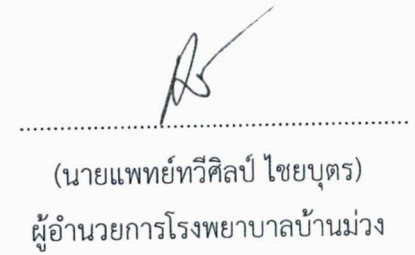 (นายแพทย์ทวีศิลป์ ไชยบุตร)
ผู้อำนวยการโรงพยาบาลบ้านม่วง